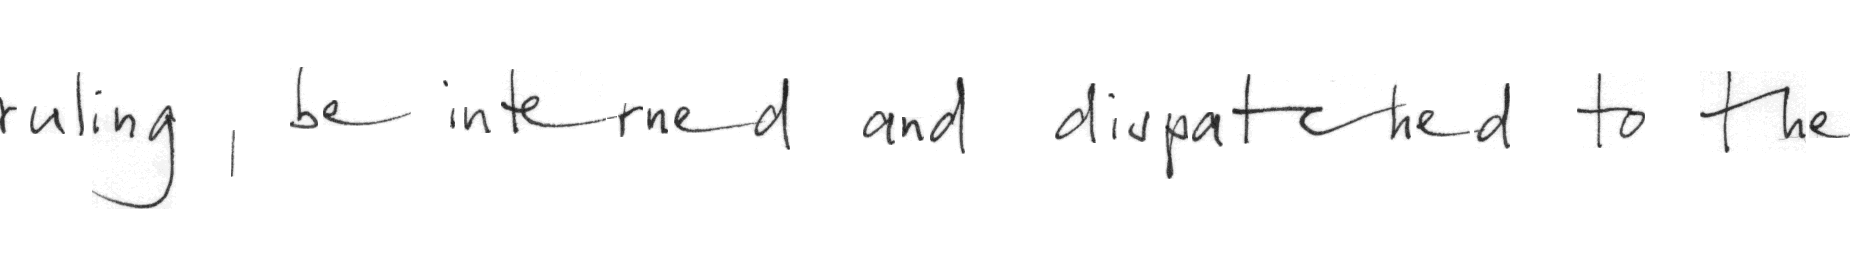 ruling, be interned and dispatched to the